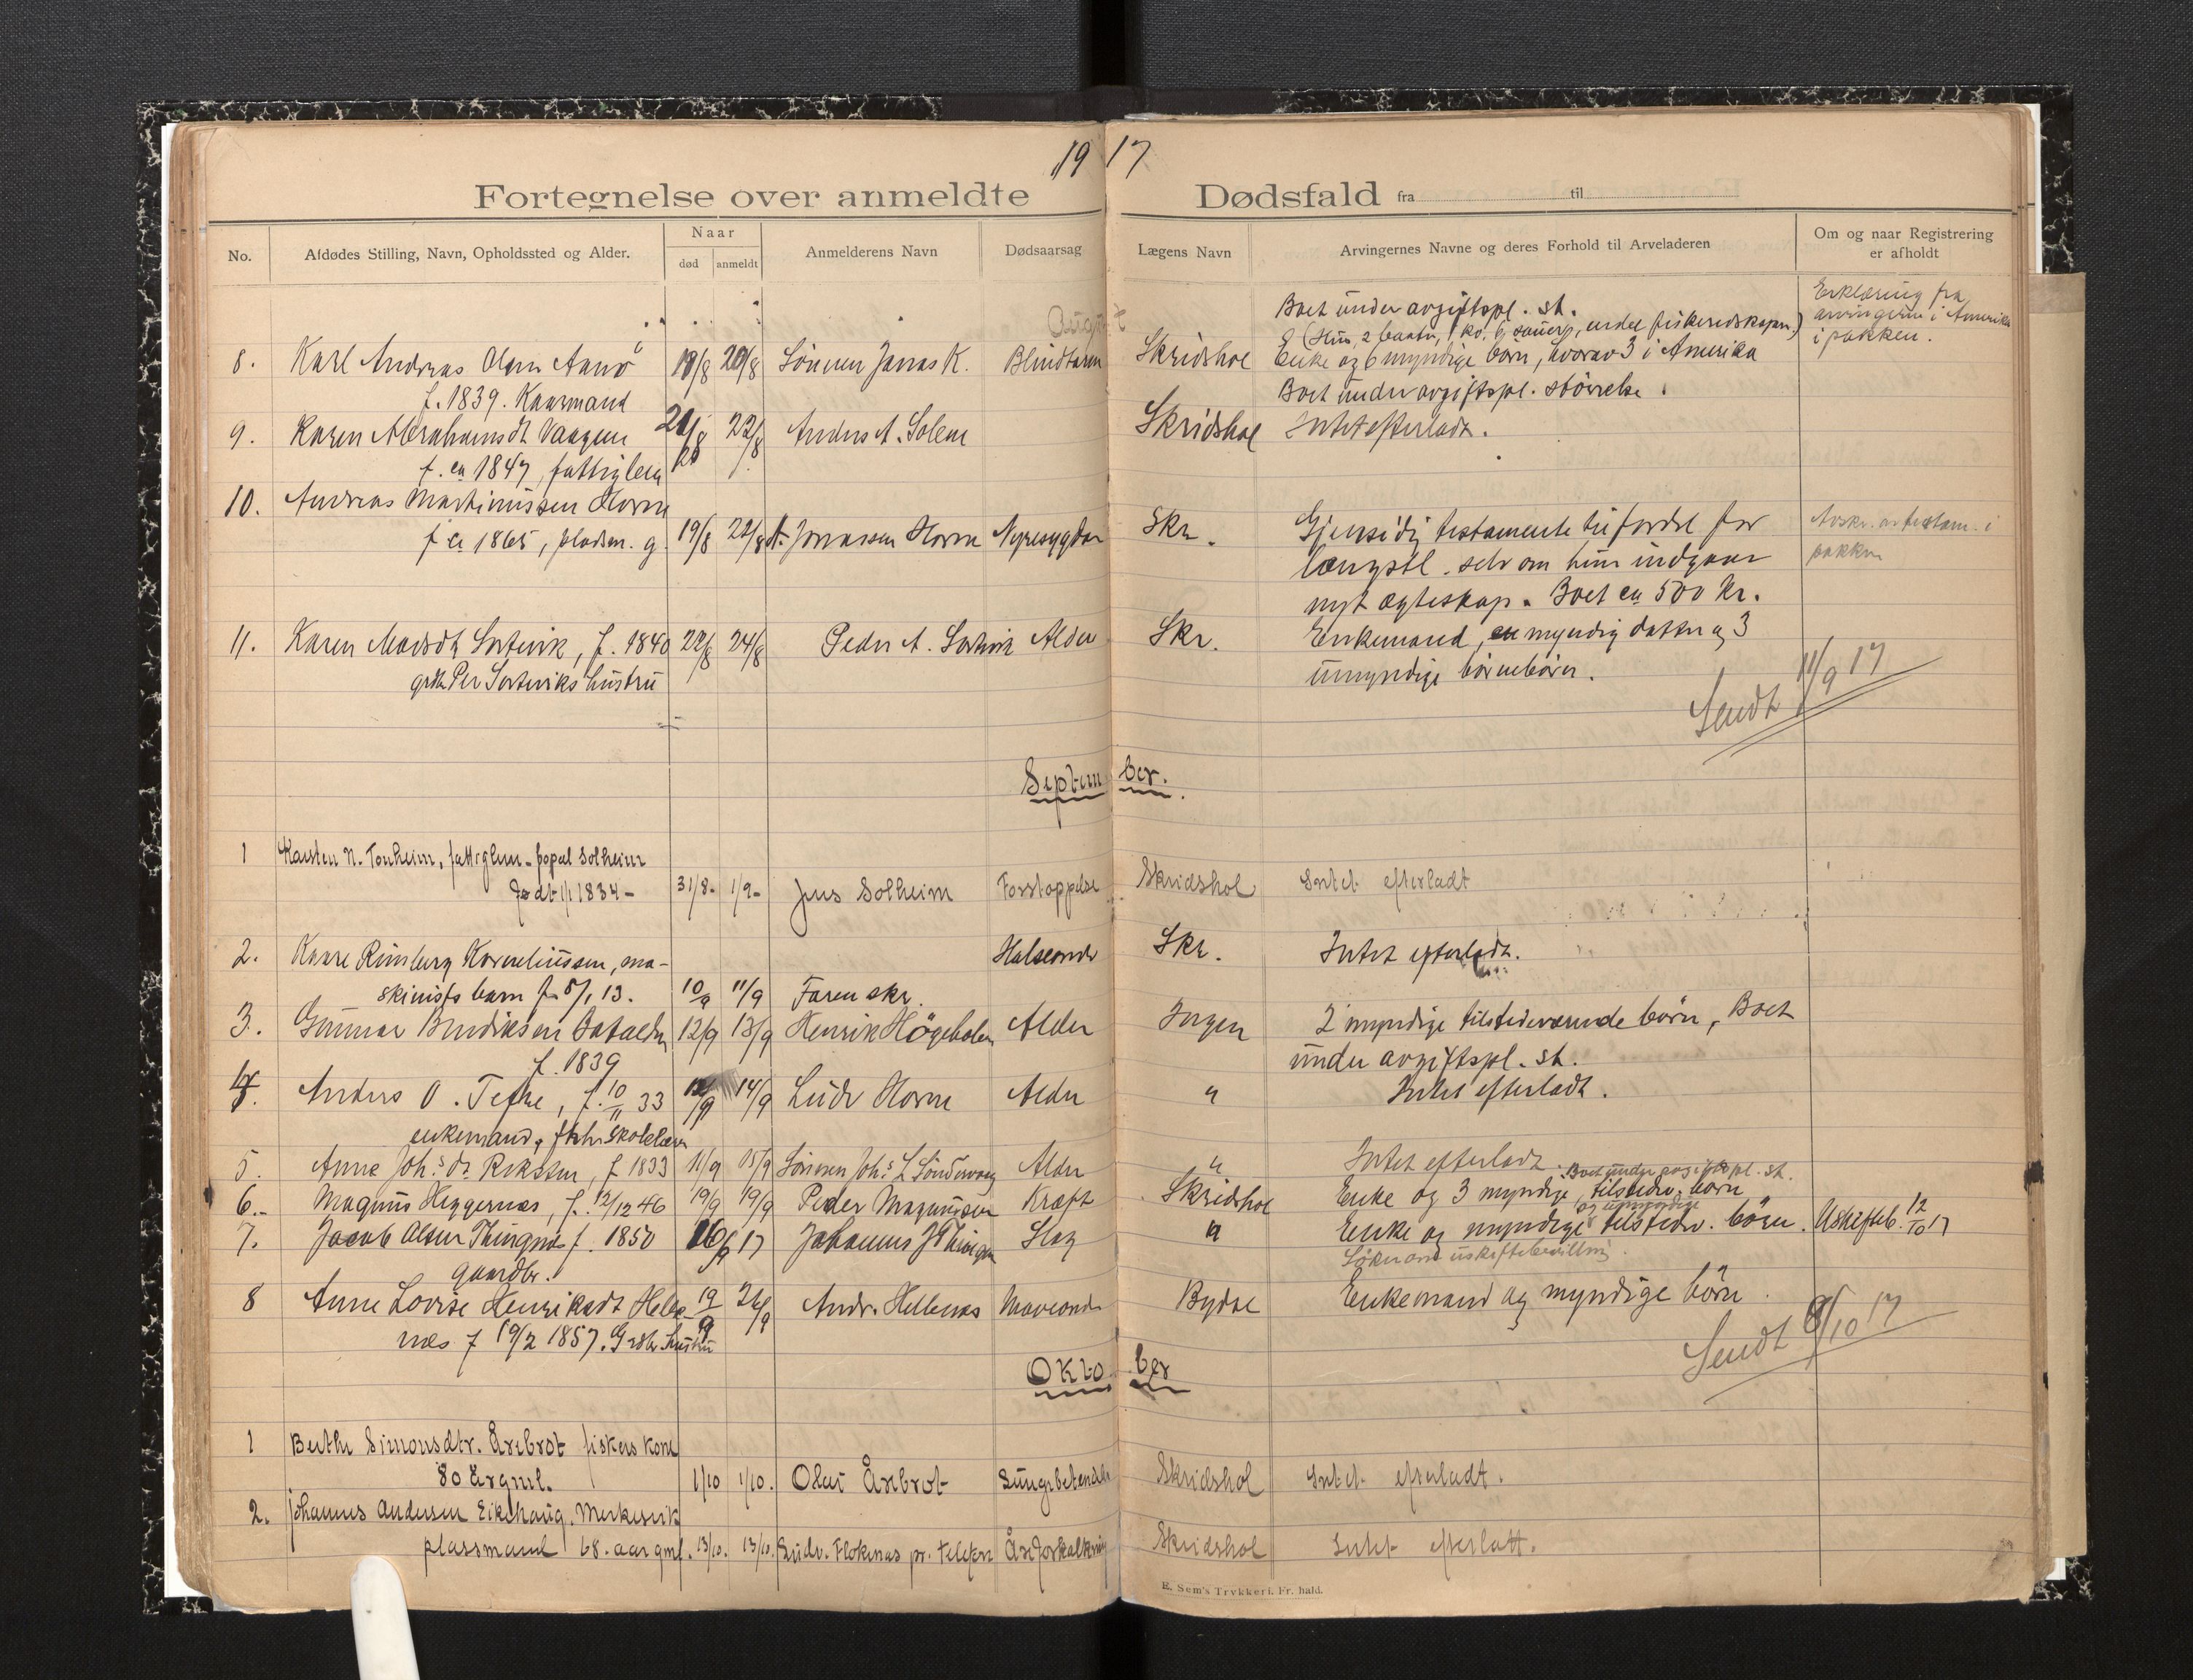 1917
Fortegnelse over anmeldte Dødsfald fra til
No.
Afdødes Stilling, Navn, Opholdssted og Alder.
Naar
død
anmeldt
Anmelderens Navn
Dødsaarsag
Lægens Navn
Arvingernes Navne og deres Forhold til Arveladeren
Om og naar Registrering
er afholdt
August
Boet under avgiftspl. st. Erklæring fra
(Hus, 2 baater, 1 ko, 6 sauer, endel fiskeredskaper.) arvingerne i Amerika
8. Karl Andreas Olsen 18/8 20/8 Sønnen Jonas K. Blindtarm Skridshol Enke og 6 myndige børn, hvorav 3 i Amerika i pakken.
f. 1839. Kaarmand Boet under avgiftspl. størrelse.
9. Karen Abrahamsdt Vaagen 21/8 22/8 Anders A. Solem Skridshol Intet efterladt.
f. ca 1847, fattiglem
10. Andreas Martinussen Horne
f ca 1865, pladsm. g. 19/8 22/8 A. Jonassen Horne Nyresygdom Skr. Gjensidig testamente til fordel for Avskr. av testam. i
længstl. selv om hun indgaar pakken
nyt ægteskap. Boet ca 500 kr.
11. Karen Madsdt Sortevik, f. 1840 22/8 24/8 Peder A. Sortevik Alder Skr. Enkemand, en myndig datter og 3
Per Sorteviks hustru umyndige børnebørn.
Sendt 11/9 17
September.
1 Karsten N. Tonheim, fattiglem - Solheim
født 1/1 1834 - 31/8 - 1/9 - Jens Solheim Forstoppelse Skridshol Intet efterladt
2. Kaare Rimberg Korneliussen, ma- Halseonde Skr. Intet efterladt.
skinists barn f. 5/1 13. 10/9 11/9 Faren skr.
3. Gunnar Bendiksen 12/9 13/9 Henrik Høgeholen Alder Ingen 2 myndige tilstedeværende børn, Boet
f. 1839 under avgiftspl. st.
4. Anders O. Tefre, f. 10/11 33 12/9 14/9 Ludv Horne Alder " Intet efterladt.
enkemand, fhv. skolelærer
5. Anne Joh.s dt. Reksten, f 1833 11/9 15/9 Sønnen Joh.s L Alder " Intet efterladt. Boet under avgiftspl. st.
6. Magnus Heggernes, f. 12/12 46 19/9 19/9 Peder Magnussen Kræft Skridshol Enke og 3 myndige, tilstedv. børn
og umyndige
7. Jacob Olsen Thingnes f. 1850 16/9 17 Johannes J Thingnes Slag " Enke og myndige tilstedv. børn. Uskifteb. 12/10 17
gaardbr. Søker om uskiftebevilling.
8 Anne Lovise Henriksdt Helle- 19/9 26/9 Andr. Hellenes Maveonde Bydal Enkemand og myndige børn.
nes f 19/2 1857. Grdbr. hustru Sendt 8/10 17
Oktober
1 Berthe Simonsdtr. Årebrot fiskers kone
80 år gml. 1/10 1/10. Olai Årebrot Lungebetendelse Skridshol Intet efterladt.
2. Johannes Andersen Eikehaug. Merkesvik
plassmand 68. aar gml. 13/10. 13/10. Ludv. Flokenes pr. telefon Åreforkalkning Skridshol Intet efterlatt.
E. Sem's Trykkeri. Fr. hald.